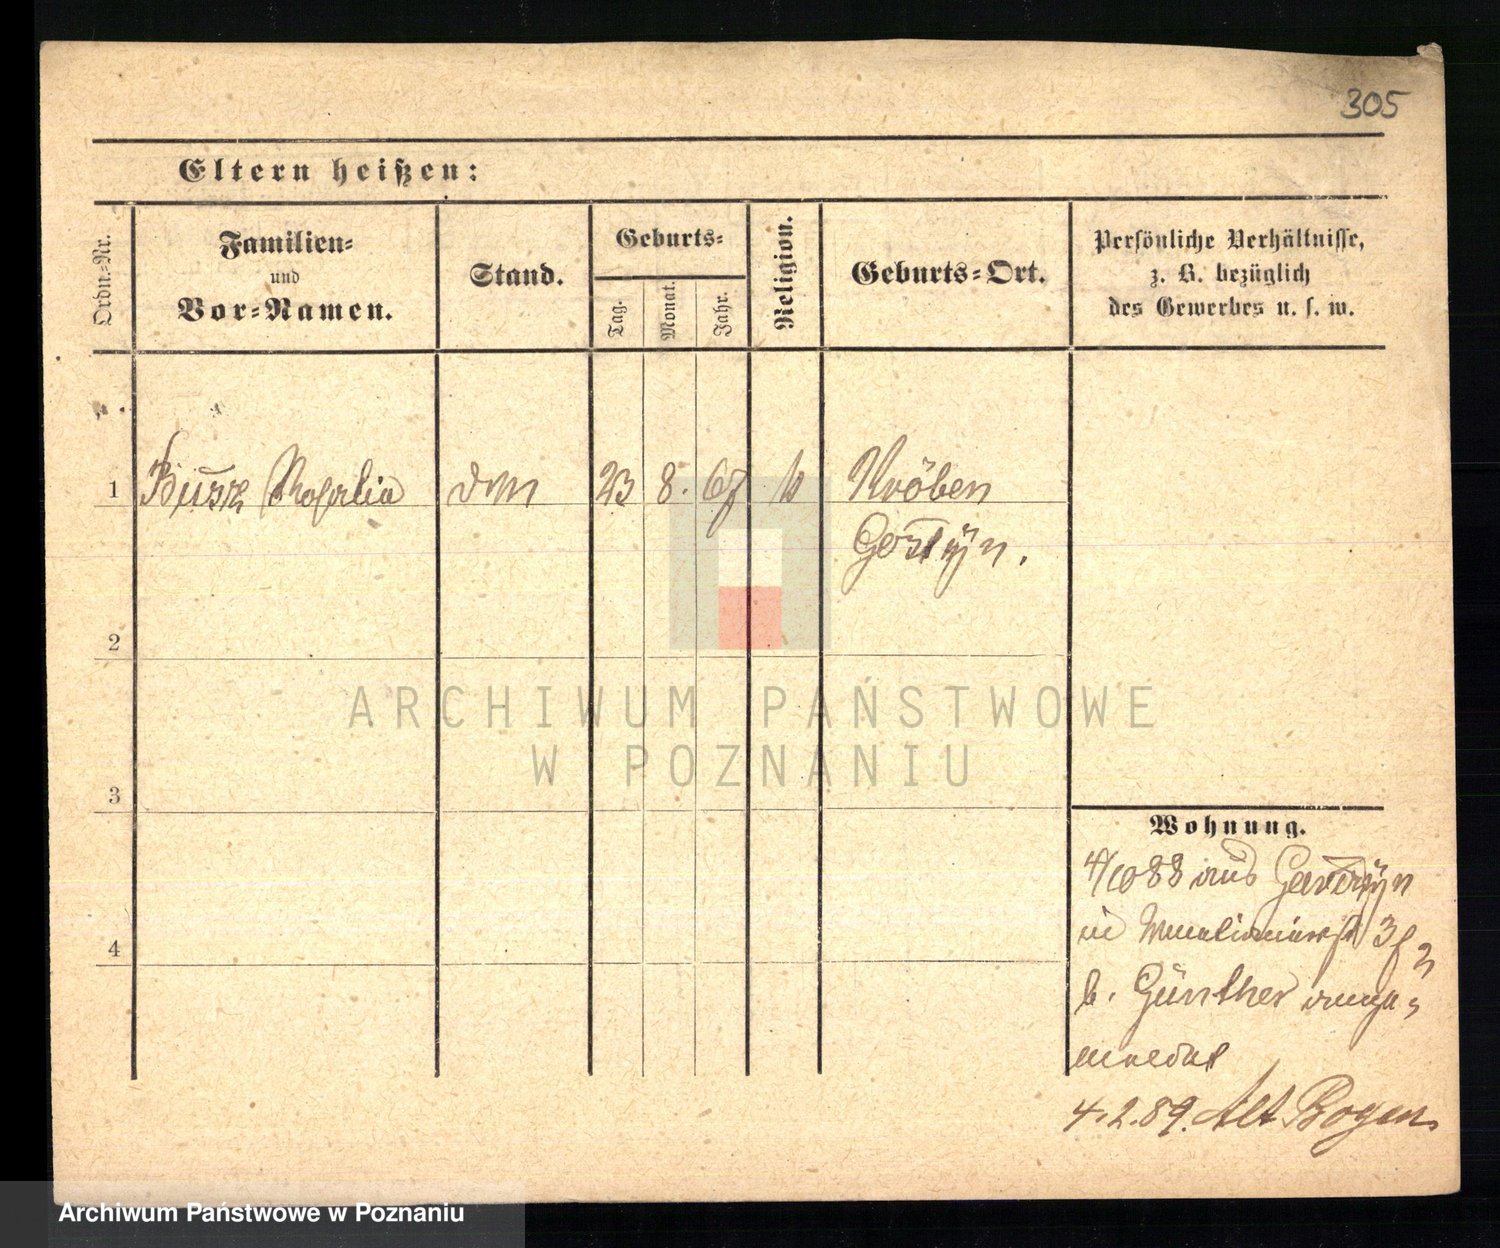 305
Eltern heißen:
Ordn.-Nr.
Familien-
und
Vor-Namen.
Stand.
Geburts-
Tag.
Monat.
Jahr.
Religion.
Geburts-Ort.
Persönliche Verhältnisse,
z. B. bezüglich
des Gewerbes u. s. w.
1 Rosalia 23 8. 67 k Kröben
Gostyn.
2
3
4
Wohnung.
4/10 88 aus Gostyn
in 3
b. Günther ange-
meldet
4.2.89. Alt Bogen
ARCHIWUM PAŃSTWOWE
W POZNANIU
Archiwum Państwowe w Poznaniu